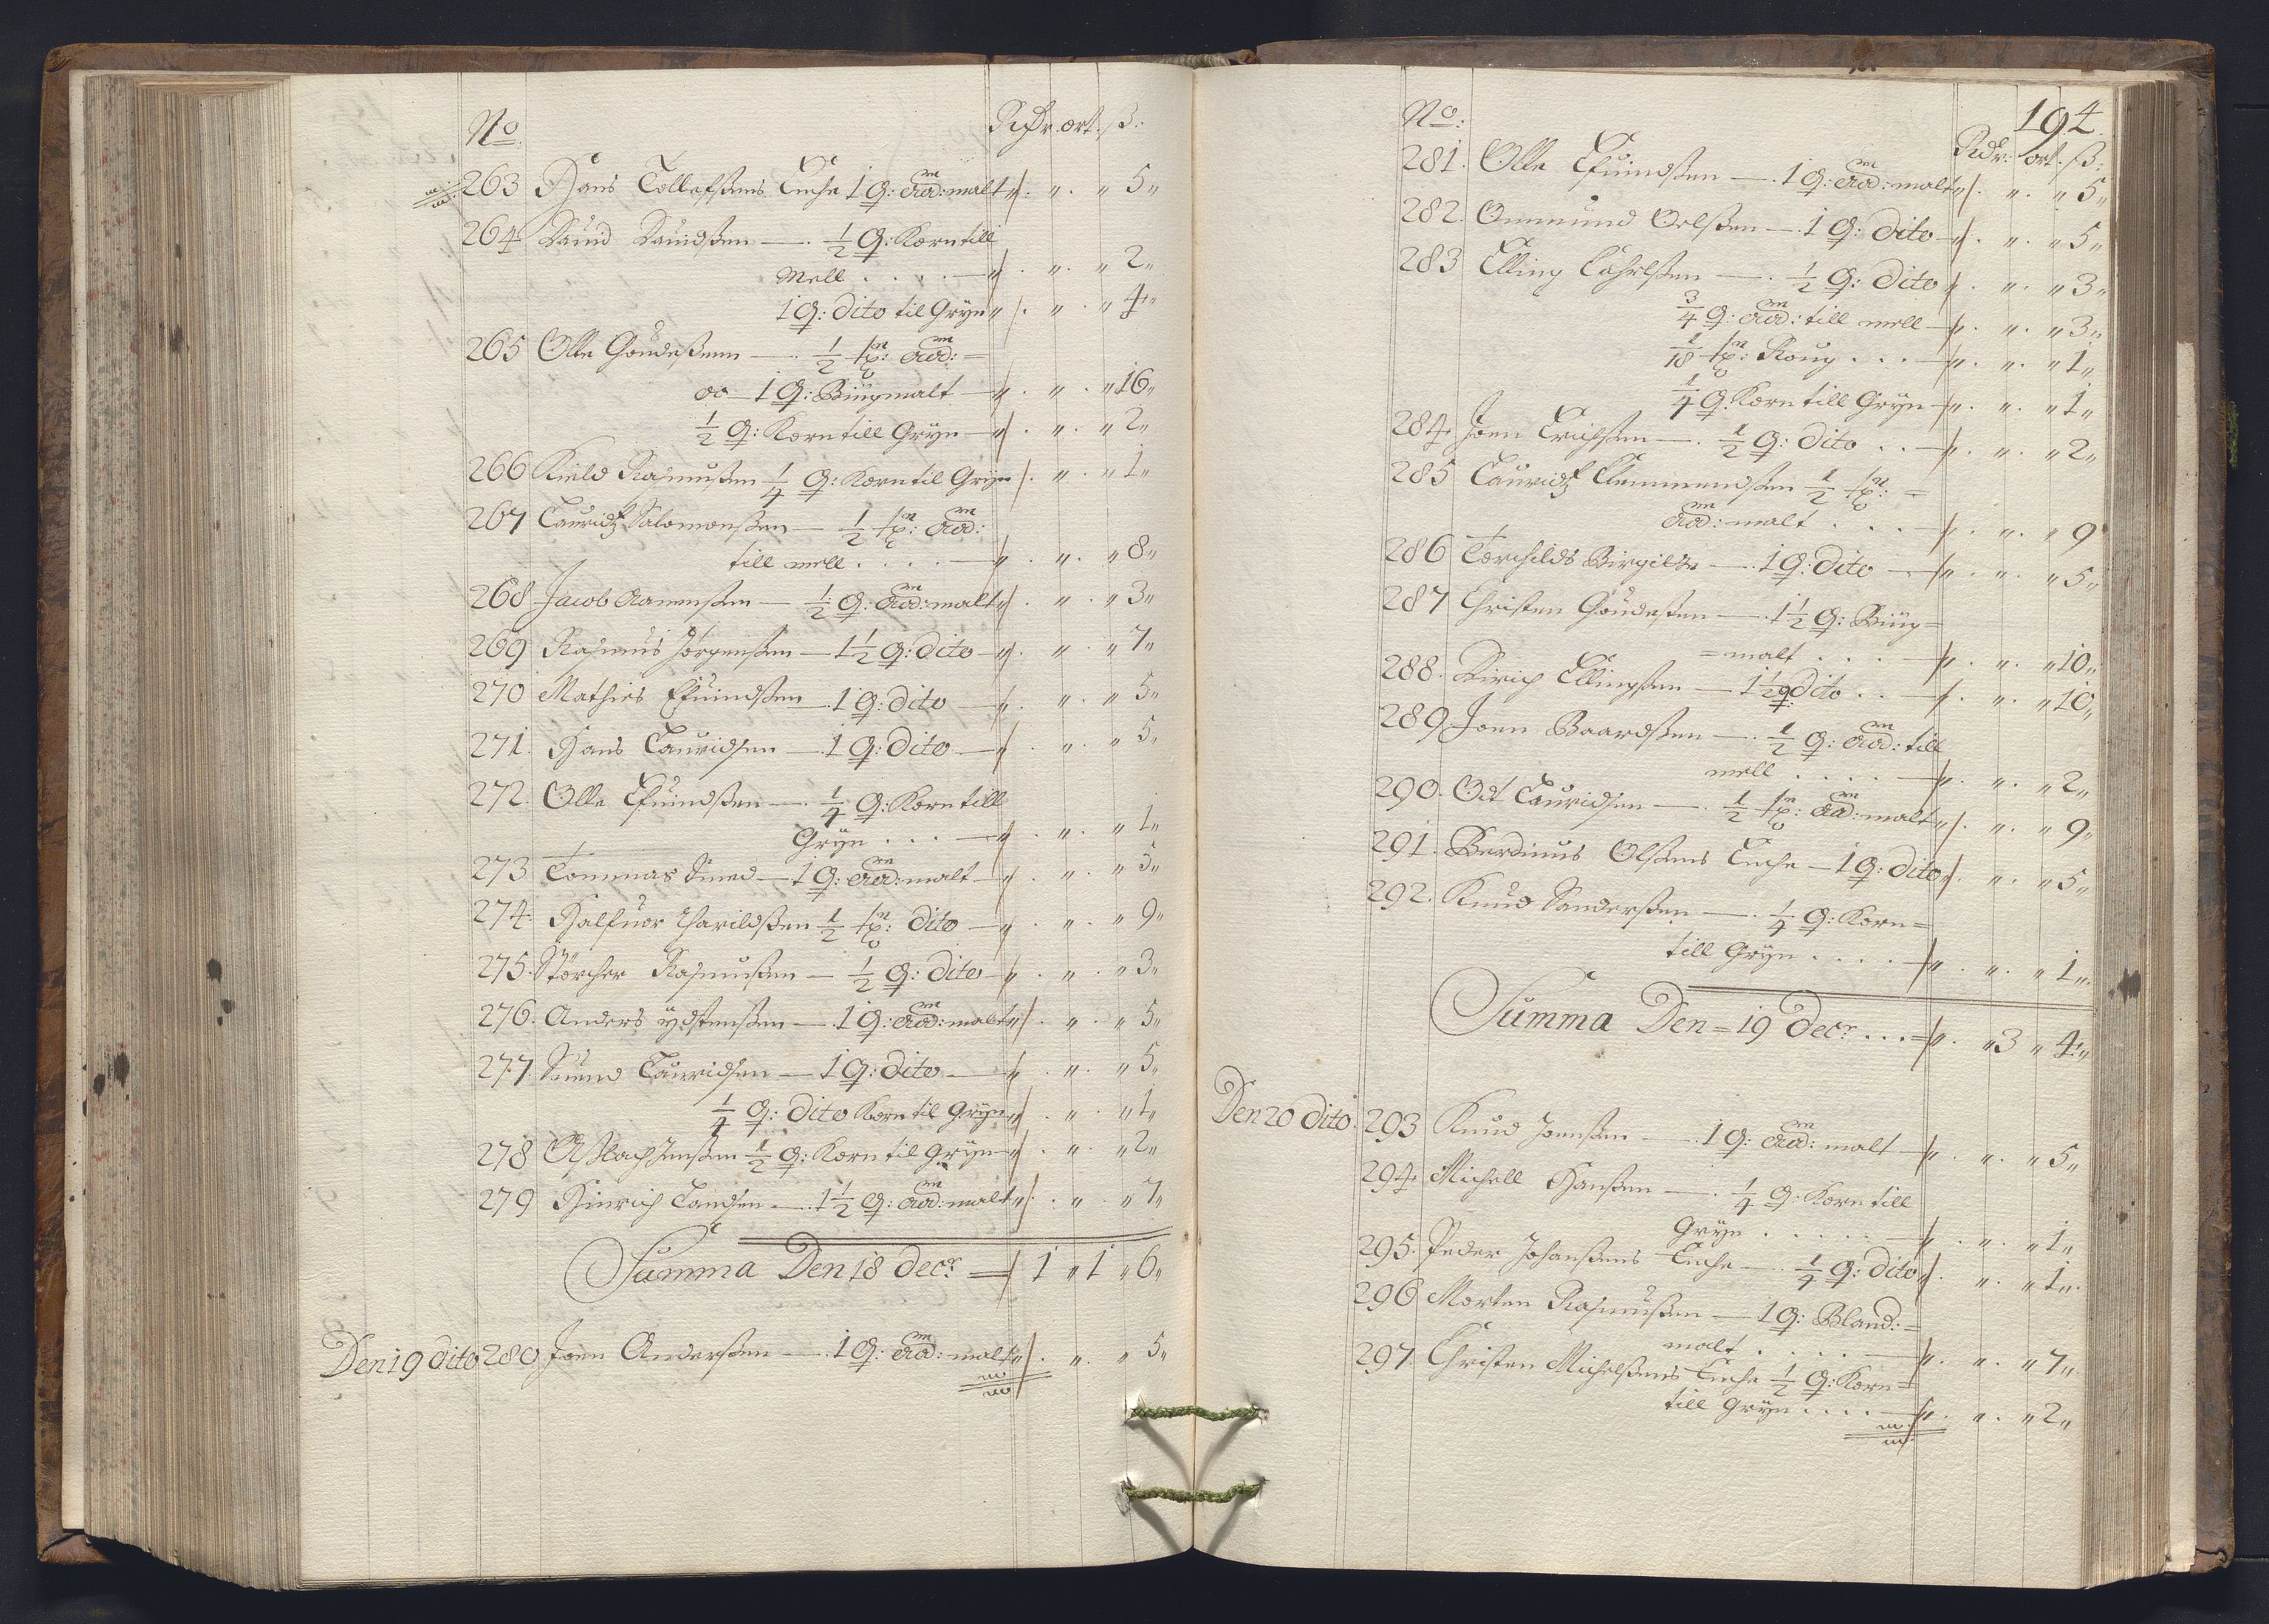 No Rdr. ort. ß:
263 Hans Tollefsens Enche 1 Q: Aad: malt „ „ 5„
264 Dauid Dauidßen — ½ Q: Korn till
Mell . . . . — „ „ „ 2„
1 Q: dito til Gryn „ „ „ 4„
265 Olle Goudeßenn — ½ tn: Aad: =
oc 1 Q: Biugmalt — „ „ „ 16„
½ Q: Korn till Gryn — „ „ „ 2„
266 Kield Rasmußen ¼ Q: Korn til Gryn „ „ 1„
267 Lauridtz Salomonßen — ½ tn: Aad:
till mell . . . . — „ „ „ 8„
268 Jacob Aamenßen — ½ Q: Aad: malt „ „ „ 3„
269 Rasmus Jörgenßen — 1½ Q: dito — „ „ „ 7„
270 Mathies Efuindßen — 1 Q: dito — „ „ „ 5„
271. Hans Lauridsen — 1 Q: dito — „ „ „ 5„
272. Olle Efuindßen — ¼ Q: Korn till
Gryn . . . — „ „ „ 1„
273 Tommas Smed — 1 Q: Aad: malt — „ „ „ 5„
274. Halfuor Tharildßen ½ tn: dito — „ „ „ 9„
275. Störcher Rasmußen — ½ Q: dito — „ „ „ 3„
276. Anders ydstenßen — 1 Q: Aad: malt „ „ „ 5„
277. Suend Lauridsen — 1 Q: dito — „ „ „ 5„
¼ Q: dito Korn til Gryn „ „ „ 1„
278 Aßlach Jenßen ½ Q: Korn til Gryn „ „ „ 2„
279 Hinrich Landsen — 1½ Q: Aad: malt „ „ „ 7„
Summa Den 18 Decr. = 1 „ 1 „ 6„
Den 19 dito 280 Joen Anderßen — 1 Q: Aad: malt „ „ „ 5„
194.
No: Rdr: ort. ß:
281. Olle Efuindßen — 1 Q: Aad: malt „ „ „ 5„
282. Ommund Oelßen — 1 Q: dito — „ „ „ 5„
283 Elling Cahrlßen — ½ Q: dito „ „ „ 3„
¾ Q: Aad: till mell — „ „ „ 3„
1/18 tn: Roug . . . — „ „ „ 1„
¼ Q: Korn till Gryn — „ „ „ 1„
284. Joen Erichßen — ½ Q: dito . . — „ „ „ 2„
285 Lauridtz Clemmendßen ½ tn: =
Aad: malt . . . — „ „ „ 9„
286 Torchilds Birgitte — 1 Q: dito — „ „ „ 5„
287 Christen Goudeßen — 1½ Q: Biug=
=malt . . . — „ „ „ 10„
288. Dirich Ellingßen — 1½ Q: dito . . — „ „ „ 10„
289. Joen Baardßen — ½ Q: Aad: till
mell . . . . — „ „ „ 2„
290. Od Lauridsen — ½ tn: Aad: malt „ „ „ 9„
291. Berdinus Olßens Enche — 1 Q: dito „ „ „ 5„
292. Knud Sanderßen — ¼ Q: Korn=
till Gryn . . . . — „ „ „ 1„
Summa Den = 19 Decr: . . . = „ „ 3 „ 4„
Den 20 dito 293 Knud Joenßen — 1 Q: Aad: malt — „ „ „ 5„
294. Michell Hanßen — ¼ Q: Korn till
Gryn . . . . . — „ „ „ 1„
295. Peder Johanßens Enche — ¼ Q: dito „ „ „ 1„
296 Morten Rasmußen — 1 Q: Bland: =
malt . . . . — „ „ „ 7„
297 Christen Michelßens Enche ½ Q: Korn=
till Gryn . . . . — „ „ „ 2„